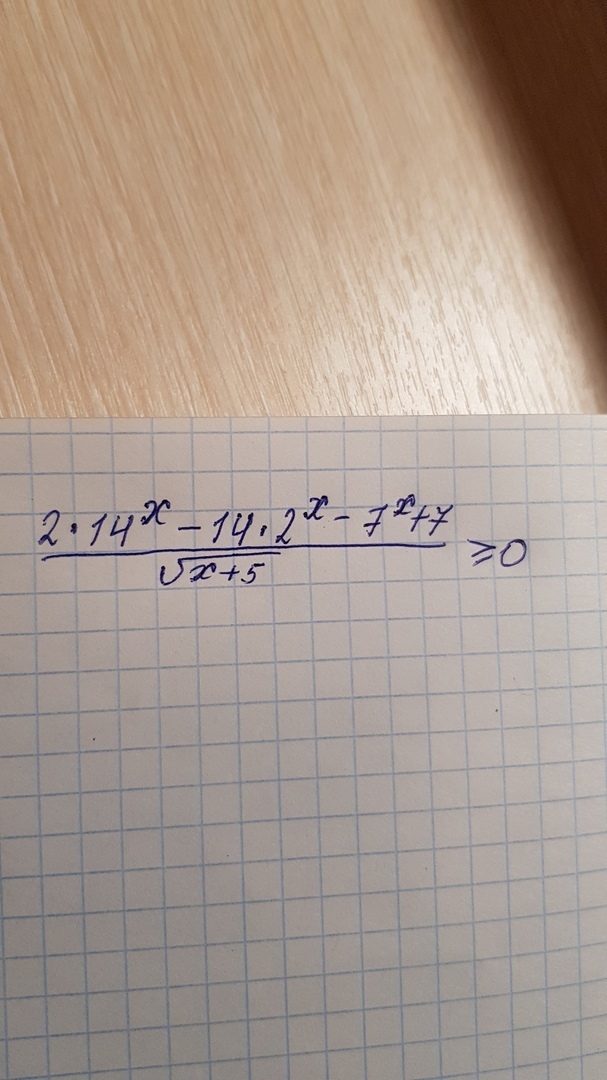 2·14^x – 14·2^x – 7^x+7
√x+5
≥0